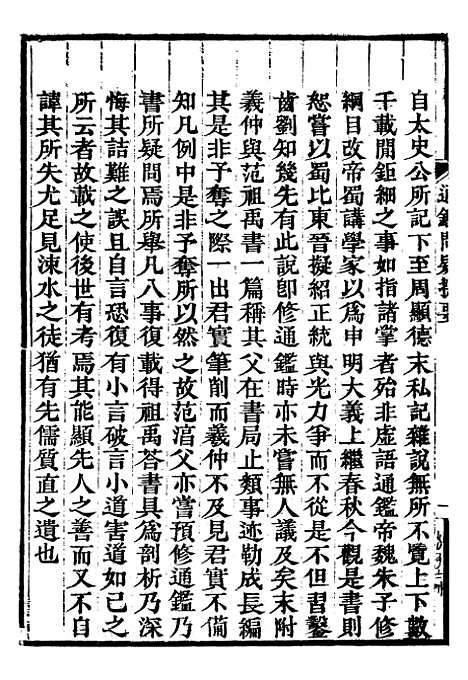 自太史公所記下至周顯德末私記雜說無所不覽上下數
千載閒鉅細之事如指諸掌者殆非虛語通鑑帝魏朱子修
綱目改帝蜀講學家以爲申明大義上繼春秋今觀是書則
恕嘗以蜀比東晉擬紹正統與光力爭而不從是不但習鑿
齒劉知幾先有此說卽修通鑑時亦未嘗無人議及矣末附
羲仲與范祖禹書一篇稱其父在書局止類事迹勒成長編
其是非予奪之際一出君實筆削而羲仲不及見君實不備
知凡例中是非予奪所以然之故范淯父亦嘗預修通鑑乃
書所疑問焉所舉凡八事復載得祖禹荅書具爲剖析乃深
悔其詰難之誤且自言恐復有小言破言小道害道如己之
所云者故載之使後世有考焉其能顯先人之善而又不自
諱其所失尤足見涑水之徒猶有先儒質直之遺也
通鑑問疑提要